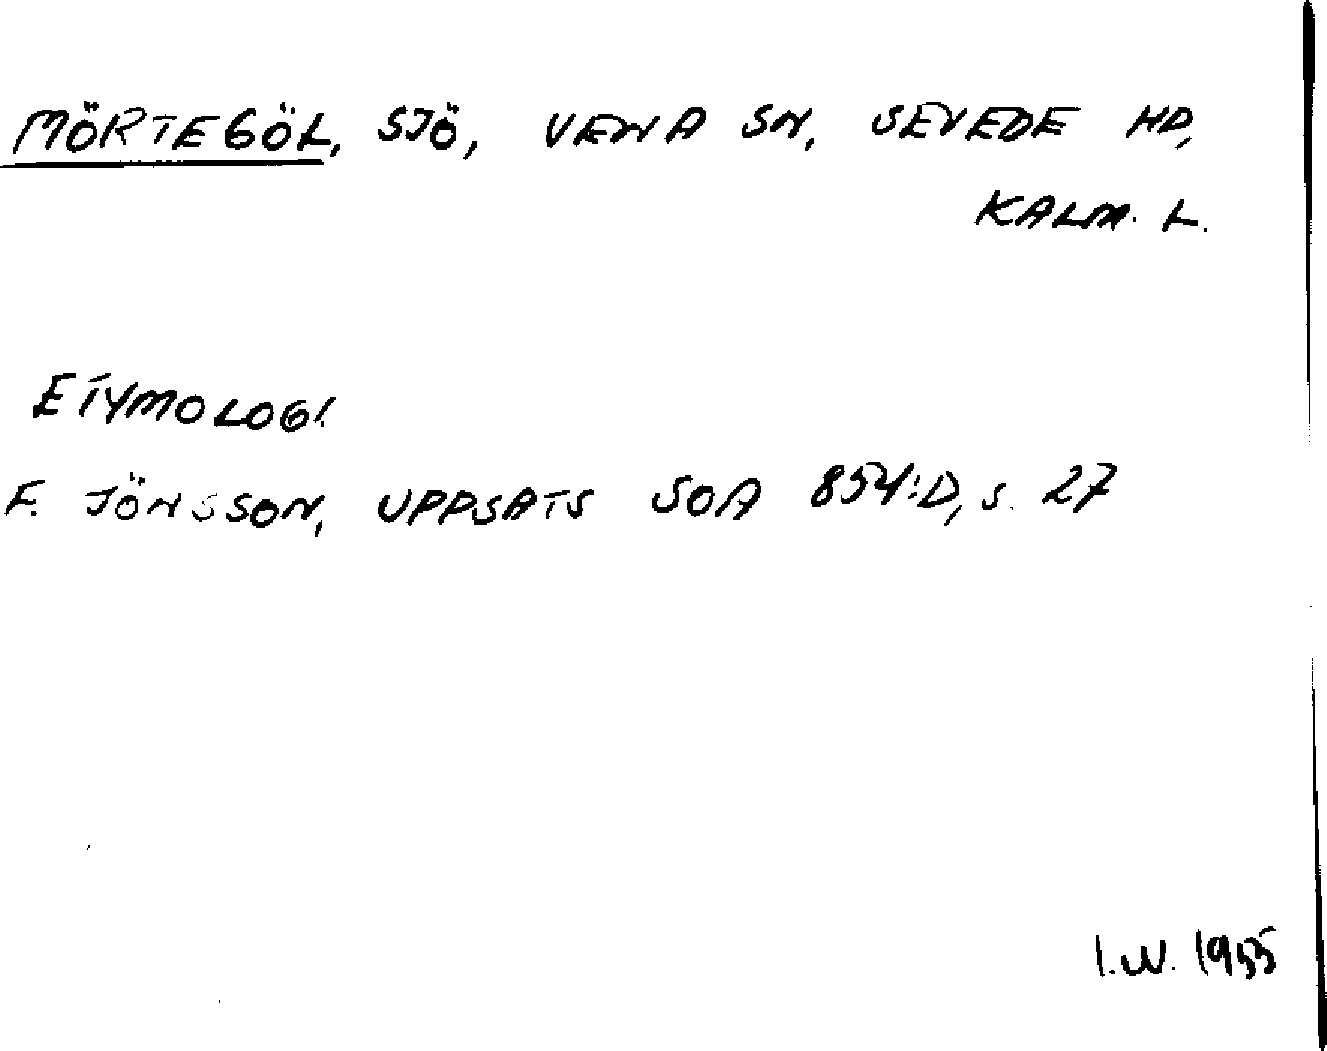 MÖRTEGÖL, SJÖ, VENA SN, SEVEDE HD,
KALM. L.
ETYMOLOGI
F. JÖNSSON, UPPSATS SOA 854:D, S. 27
I.W. 1955